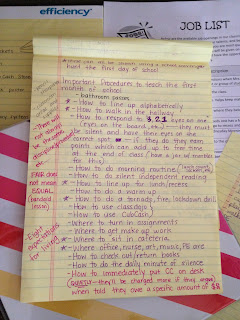 efficiency
JOB LIST
hunt the first day of school
Important Procedures to teach the first
month of school
- bathroom passes
* - How to line up alphabetically
* - How to walk in the hallway
- How to respond to 3, 2, 1 eyes on me
(sign on the board, etc.) — they must
be silent and have their eyes on the
correct spot — if they do they earn
points which can add up to free time
at the end of class (have a jar of marbles
for this).
- How to do morning routine
- How to do silent independent reading
* - How to line up for lunch/recess
- How to do a warm-up
* - How to do a tornado, fire, lockdown drill
- How to use classdojo
- How to use CubCash
- Where to turn in assignments
- Where to get make up work
* - Where to sit in cafeteria
* - Where office, nurse, art, music, PE are
- How to check out/return books
- How to do the daily minute of silence
- How to immediately put CC on desk
QUIETLY - they'll be charged more if they argue
when told they owe a specific amount of $$
There will
still be
the same
FAIR does
not mean
EQUAL
(bandaid
lesson)
Eight
expectations
for living